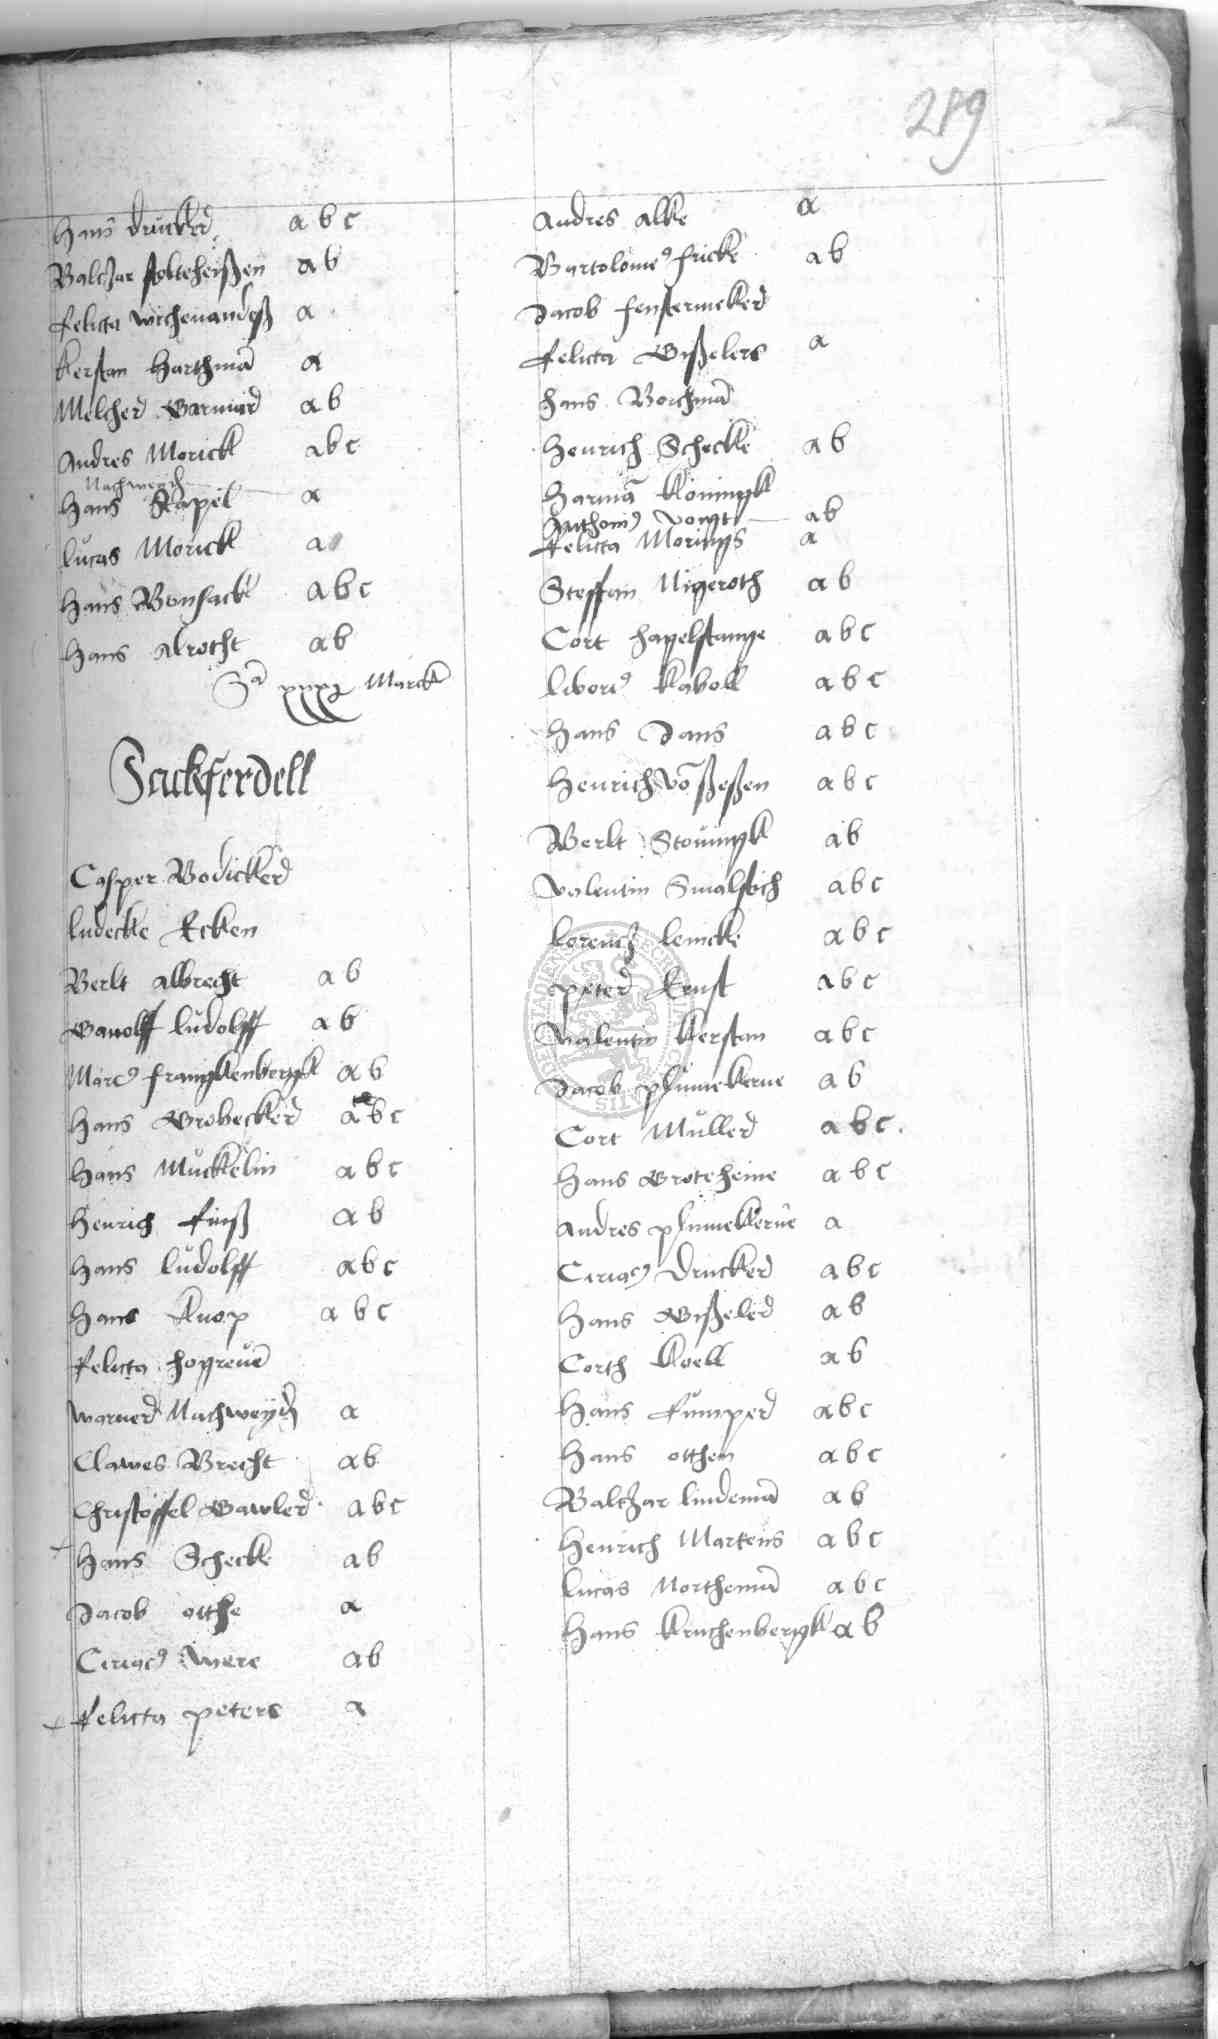 289
Hans drucker a b c
Baltzar stolteheißen a b
Relicta wichenandeß a
Kerstan Harthman a
Melcher Garmard a b
Andres Morick a b c
Nachweyd
Hans Kapel a
Lucas Morick a
Hans Bonsack a b c
Hans Alrecht a b
Sa xxxj Marck
Sackferdell
Casper Bodicker
Ludecke Ecken
Berlt Albrecht a b
Gawolff Ludolff a b
Marcus Frangkenbergk a b
Hans Grobecker a b c
Hans Muckelin a b c
Henrich Finß a b
Hans Ludolff a b c
Hans Knop a b c
Relicta Hogreven
Warner Nachweyd a
Clawes Brecht a b
Christoffel Gawler a b c
Hans Schecke a b
Jacob Otthe a
Ciriacus Were a b
Relicta Peters a
Andres Alke a
Bartolomeus Fricke a b
Jacob Fenstermeker
Relicta Gißelers a
Hans Borchman
Henrich Schecke a b
Harman Koningk
Anthonius Vongt a b
Relicta Morings a
Steffan Nigeroth a b
Cort Hagelstange a b c
Livorius Raboll a b c
Hans Dans a b c
Henrich von Seßen a b c
Berlt Stovingk a b
Valentin Smalstich a b c
Lorentz Lencke a b c
Peter Ernst a b c
Valentin Kerstan a b c
Jacob Plumekerne a b
Cort Muller a b c
Hans Groteheine a b c
Andres Plumekerne a
Ciriacus Drucker a b c
Hans Gißeler a b
Corth Koell a b
Hans Fumper a b c
Hans Otthen a b c
Baltzar Lindeman a b
Henrich Martens a b c
Lucas Northeman a b c
Hans Kruchenbergk a b